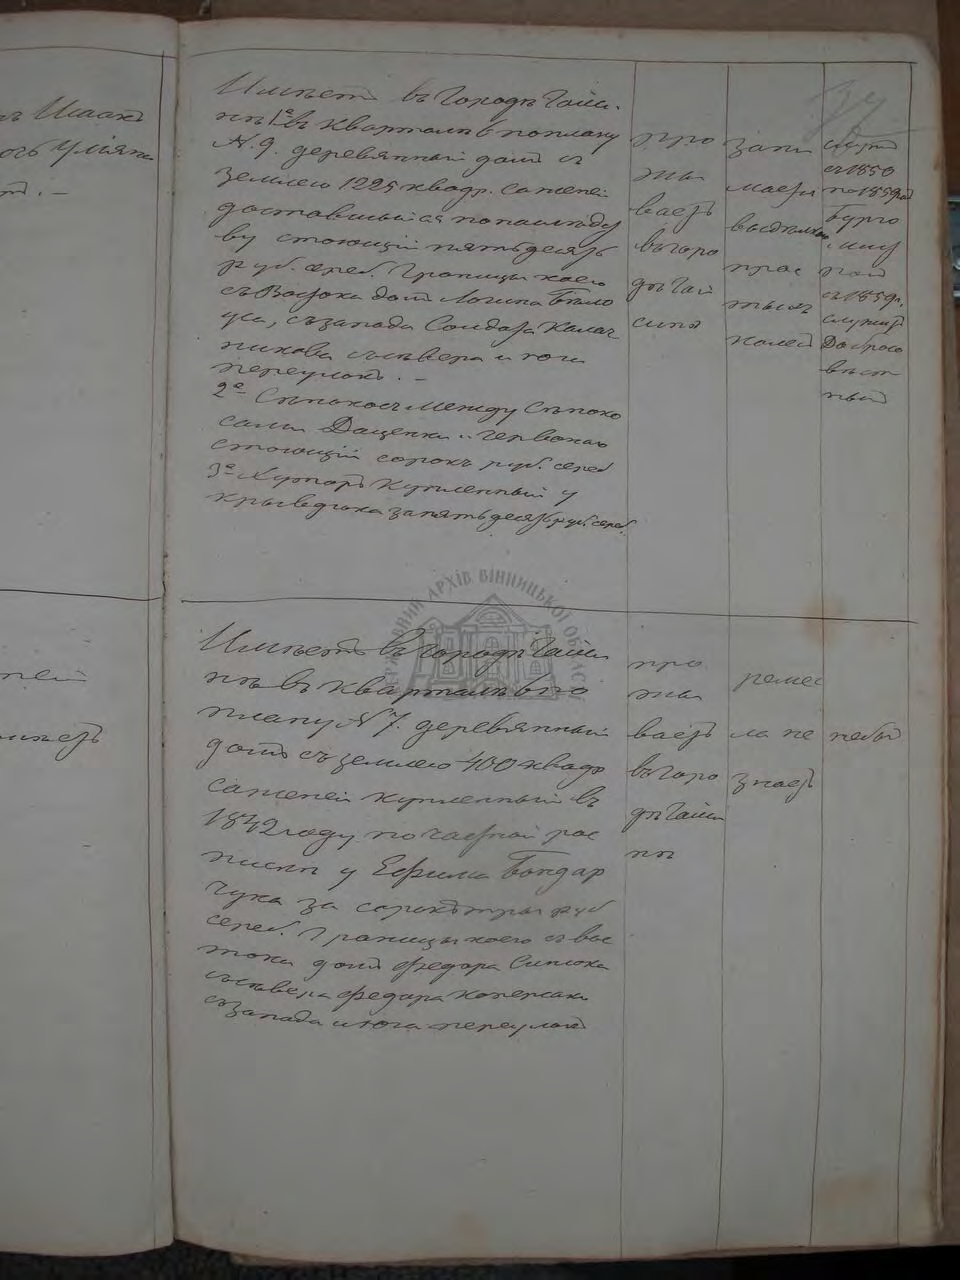 Имѣетъ въ Городѣ Гайси
нѣ 1е въ Кварталѣ 6 по плану
№ 9. деревянный домъ съ
землею 1225 квадр. сажень
доставшыйся по наслѣдс
ву стоющій пятьдесятъ
руб. сереб. Границы коего
съ Востока домъ Логина Було
уса, съ запада Солдата Калач
никова съ сѣвера и юга
переулокъ. —
2е Сѣнокосъ между сѣноко
сами Даценка и Червонаго
стоющій сорокъ руб. сереб
3е Хуторъ Купленный у
за пятьдесятъ руб. сереб.
про
жи
ваетъ
въ горо
дѣ Гай
синѣ
зани
маетъ
прос
тыхъ
съ 1850
по 1859 год
Бурго
мис
съ 1859 г.
служитъ
Доброс
вѣст
ный
Имѣетъ въ городѣ Гайси
нѣ въ Кварталѣ 6 по
плану № 7. деревянный
домъ съ землею 400 квадр
саженей купленный въ
1842 году по частной рос
писки у Ефима Бондар
чука за сорокъ три руб
сереб. Границы коего съ вос
тока домъ Федора
съ сѣвера Федора
съ запада и юга переулокъ
про
жи
ваетъ
въ горо
дѣ Гайси
нѣ
ремес
ла не
знаетъ
небы
ДЕРЖАВНИЙ АРХІВ ВІННИЦЬКОЇ ОБЛАСТІ